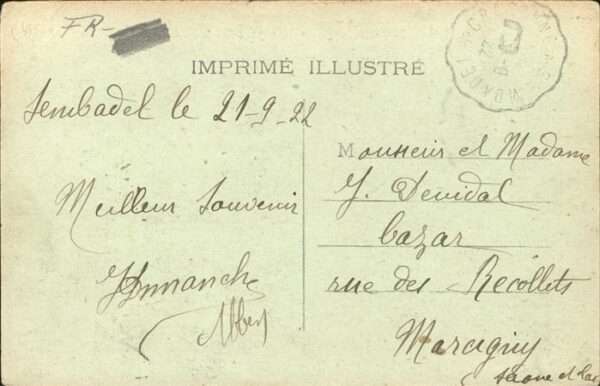 FR-
IMPRIMÉ ILLUSTRÉ
Sembadel le 21-9-22
Meilleur Souvenir
Monsieur et Madame
J. Devidal
bazar
rue des Récollets
Marcigny
Saone et Loi